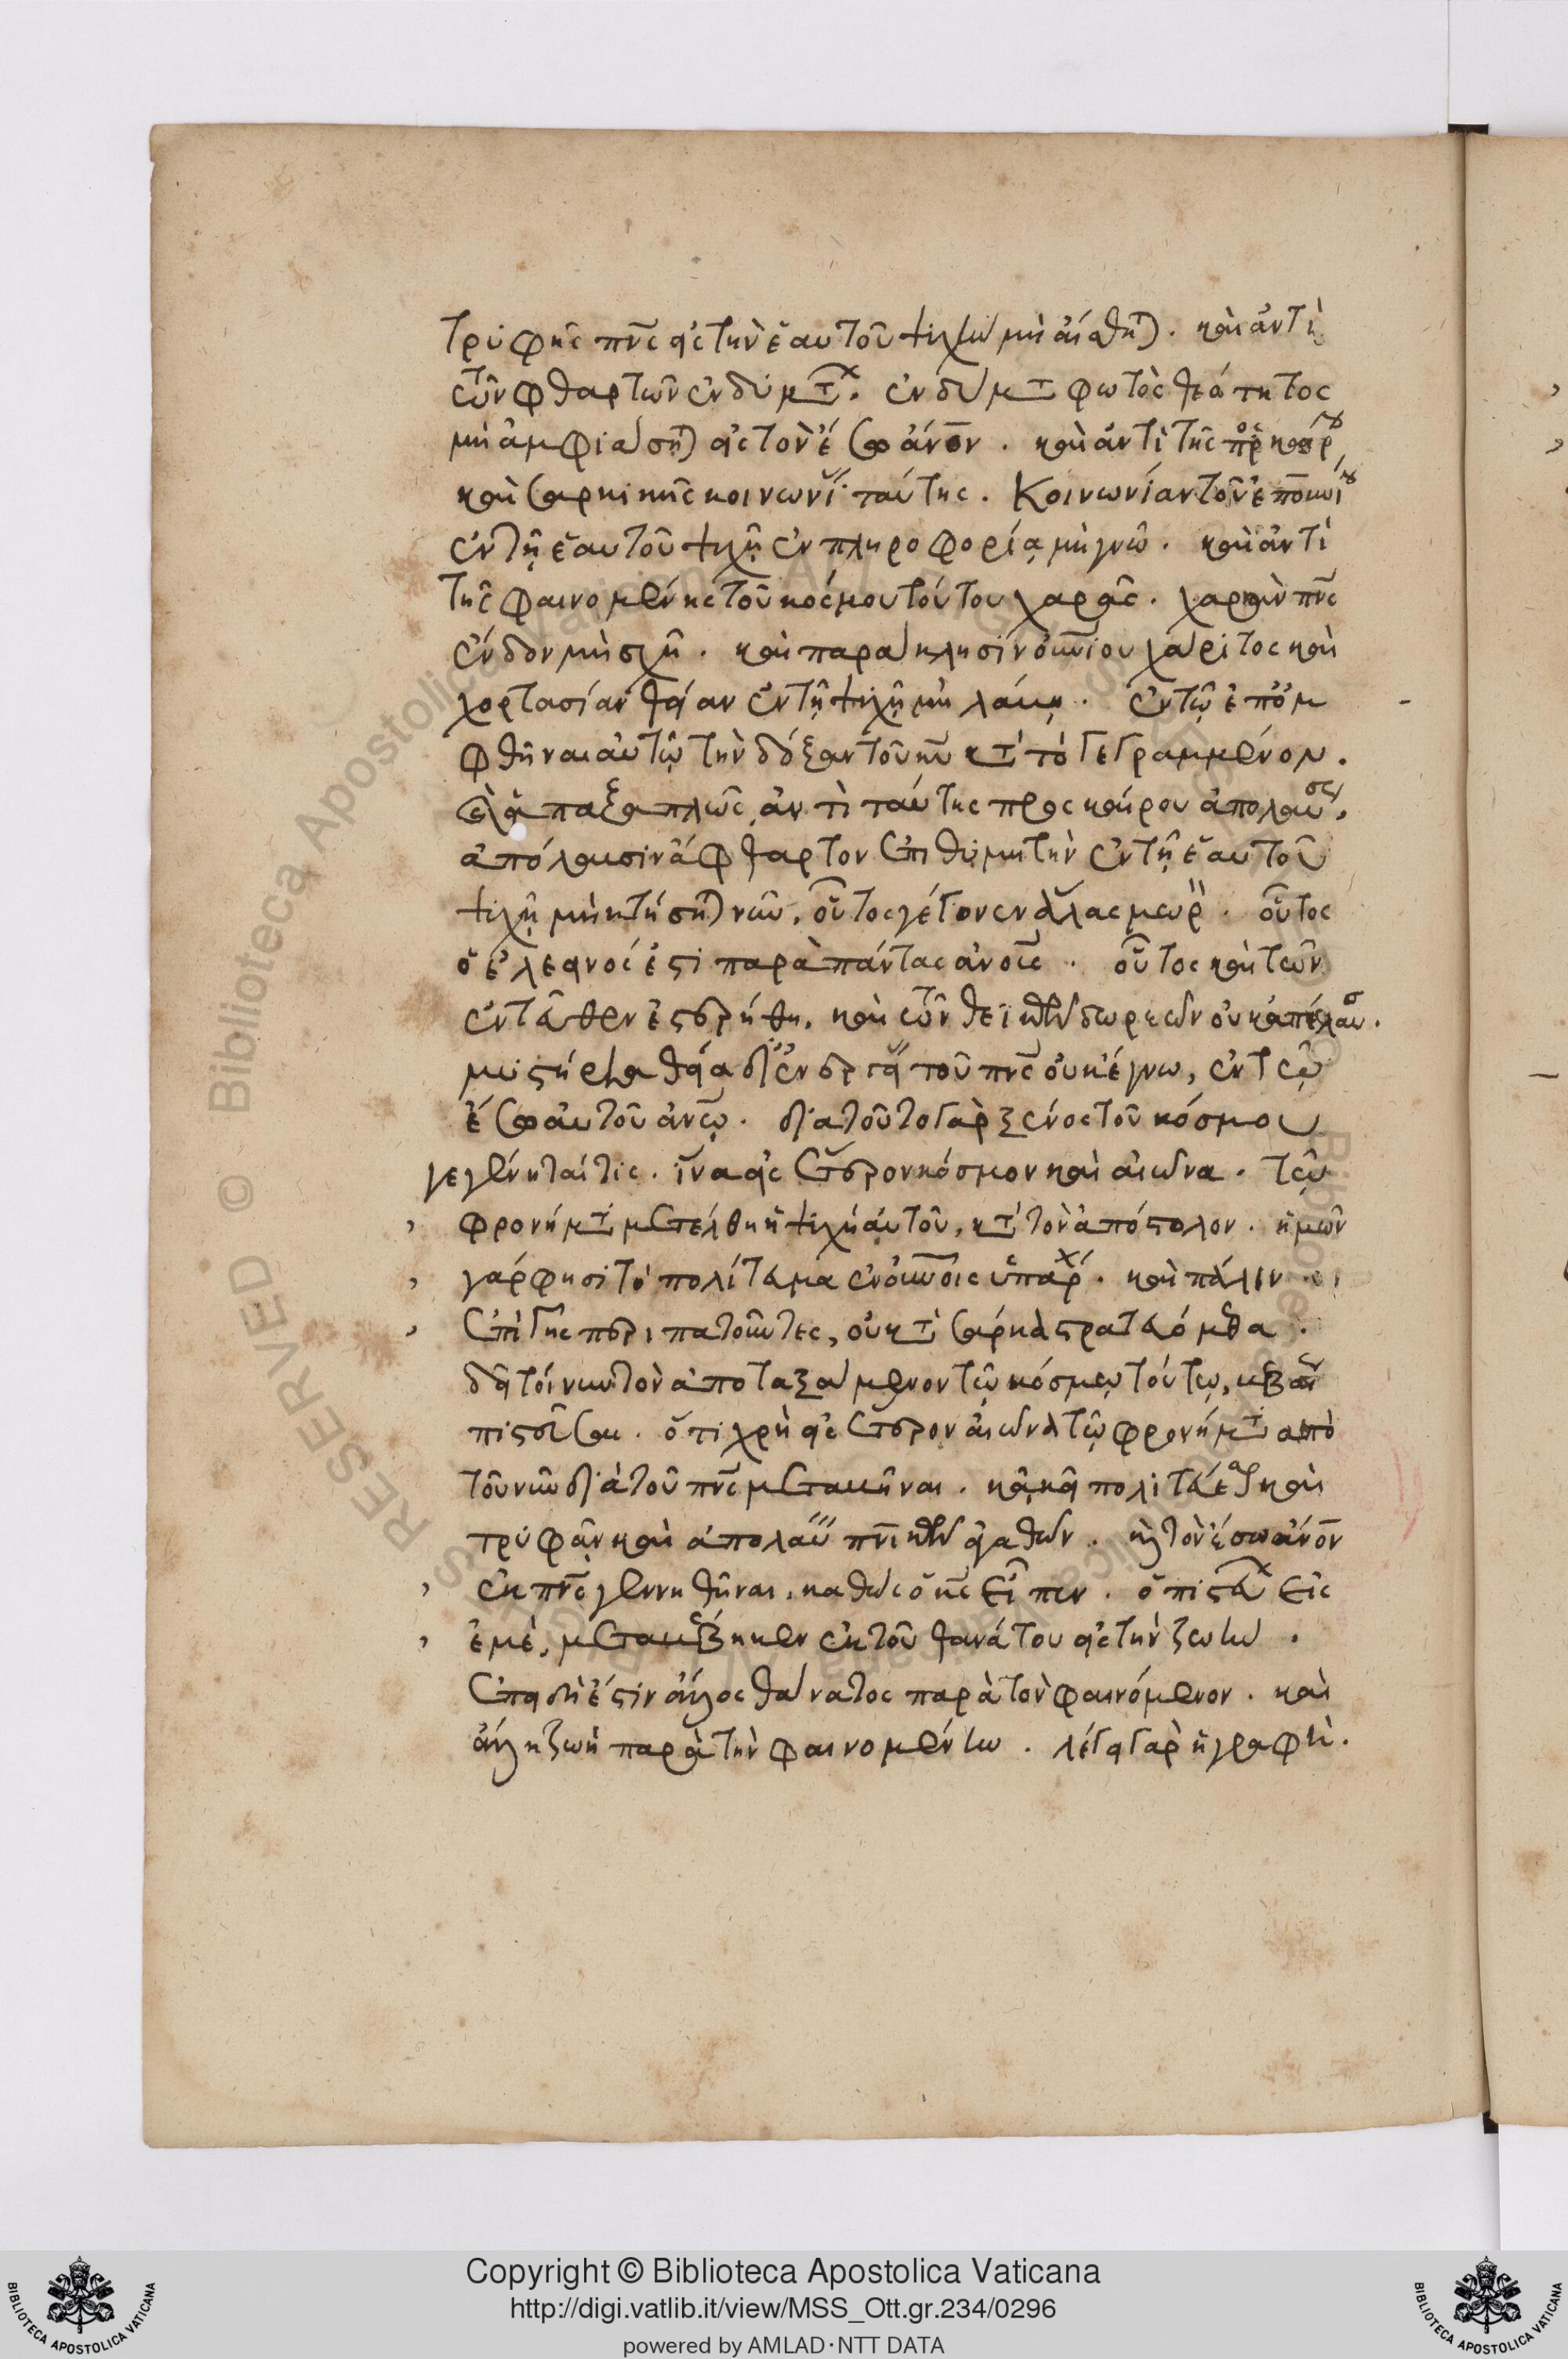 τρυφῆς πν̅ς εἰς τὴν ἑαυτοῦ ψυχὴν μὴ αἰσθητ). καὶ ἀντὶ
τῶν φθαρτῶν ἐνδυμάτ. ἐνδυμα φωτὸς θεότητος
μὴ ἀμφιάσητ) εἰς τὸν ἔσω ἄνον. καὶ ἀντὶ τῆς προσκαίρου
καὶ σαρκικῆς κοινωνί ταύτης. κοινωνίαν τοῦ ἐπουνίου
ἐν τῇ ἑαυτοῦ ψυχῇ ἐν πληροφορίᾳ μὴ γνῶ. καὶ ἀντὶ
τῆς φαινομένης τοῦ κόσμου τούτου χαρᾶς. χαρὰν πν̅ς
ἔνδον μὴ σχῇ. καὶ παράκλησιν οὐνίου χάριτος καὶ
χορτασίαν θείαν ἐν τῇ ψυχῇ μὴ λάβῃ. ἐν τῷ
φθῆναι αὐτῷ τὴν δόξαν τοῦ κυ κατὰ τὸ γεγραμμένον.
καὶ ἁπαξαπλῶς ἀντὶ ταύτης προσκαίρου ἀπολαύσε,
ἀπόλαυσιν ἄφθαρτον ἐπιθυμητὴν ἐν τῇ ἑαυτοῦ
ψυχῇ μὴ κτήσητ) νῦν, οὗτος γέγονεν ἅλας μωρ. οὗτος
ὁ ἐλεεινός ἐστι παρὰ πάντας ἀνους. οὗτος καὶ τῶν
ἐνταῦθεν ἐστερήθη, καὶ τῶν θεϊκῶν δωρεῶν οὐκ ἀπέλαυσ.
μυστήρια θεῖα δι' ἐνεργεί τοῦ πν̅ς οὐκ ἔγνω, ἐν τῷ
ἔσω αὐτοῦ ἀνῳ. διὰ τοῦτο γὰρ ξένος τοῦ κόσμου
γεγένηταί τις. ἵνα εἰς ἕτερον κόσμον καὶ αἰῶνα. τῷ
φρονήματι μετέλθῃ ἡ ψυχὴ αὐτοῦ, κατὰ τὸν ἀπόστολον. ἡμῶν
γάρ φησι τὸ πολίτευμα ἐν οὐνοις ὑπάρχ. καὶ πάλιν
ἐπὶ γῆς περιπατοῦντες, οὐ κατὰ σάρκα στρατευόμεθα.
δεῖ τοίνυν τὸν ἀποταξάμενον τῷ κόσμῳ τούτῳ, βεβαί
πιστεῦσαι. ὅτι χρὴ εἰς ἕτερον αἰῶνα τῷ φρονήματι ἀπὸ
τοῦ νῦν διὰ τοῦ πν̅ς μεταβῆναι. κἀκεῖ πολιτεύε καὶ
τρυφᾷν καὶ ἀπολαύ πν̅ικῶν ἀγαθῶν. καὶ τὸν ἔσω ἄνον
ἐκ πν̅ς γεννηθῆναι, καθὼς ὁ κς εἶπεν. ὁ πιστεύ εἰς
ἐμὲ, μεταβέβηκεν ἐκ τοῦ θανάτου εἰς τὴν ζωὴν.
ἐπειδὴ ἔστιν ἄλλος θάνατος παρὰ τὸν φαινόμενον. καὶ
ἄλλη ζωὴ παρὰ τὴν φαινομένην. λέγει γὰρ ἡ γραφὴ.
Copyright © Biblioteca Apostolica Vaticana
http://digi.vatlib.it/view/MSS_Ott.gr.234/0296
powered by AMLAD·NTT DATA
BIBLIOTECA APOSTOLICA VATICANA
BIBLIOTECA APOSTOLICA VATICANA